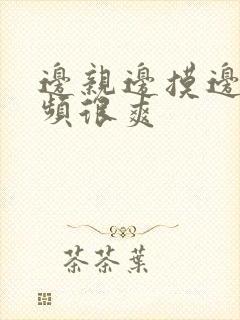 邊親邊摸邊
頻很爽
茶茶葉